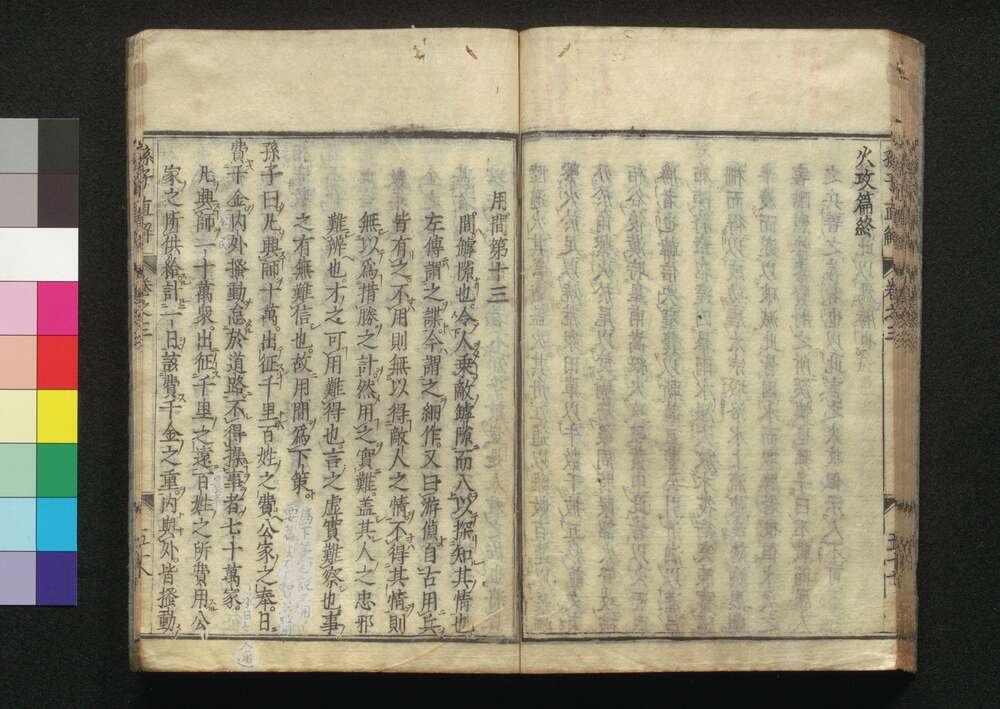 火攻篇終
用間第十三
間罅隙也令人乗敵罅隙而入以探知其情也
左傳謂之諜今謂之細作又曰游偵自古用兵
皆有之不用則無以得敵人之情不得其情則
無以爲措勝之計然用之實難蓋其人之忠邪
難辨也才之可用難得也言之虚實難察也事
之有無難信也故用間爲下策
孫子曰凡興師十萬出征千里百姓之費公家之奉日
費千金内外搔動怠於道路不得操事者七十萬家
凡興師一十萬衆出征千里之遠百姓之所費用公
家之所供給計一日該費千金之重内與外皆搔動
孫子直解
卷之三
五十八